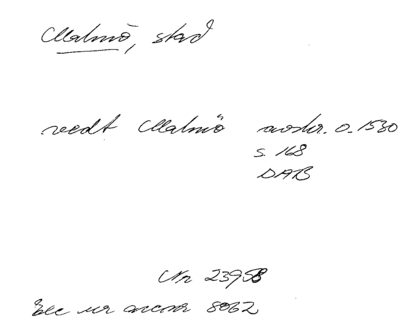 Malmö, stad
vedt Malmö avskr. o. 1530
s. 168
DAB
Nr 23958
8062